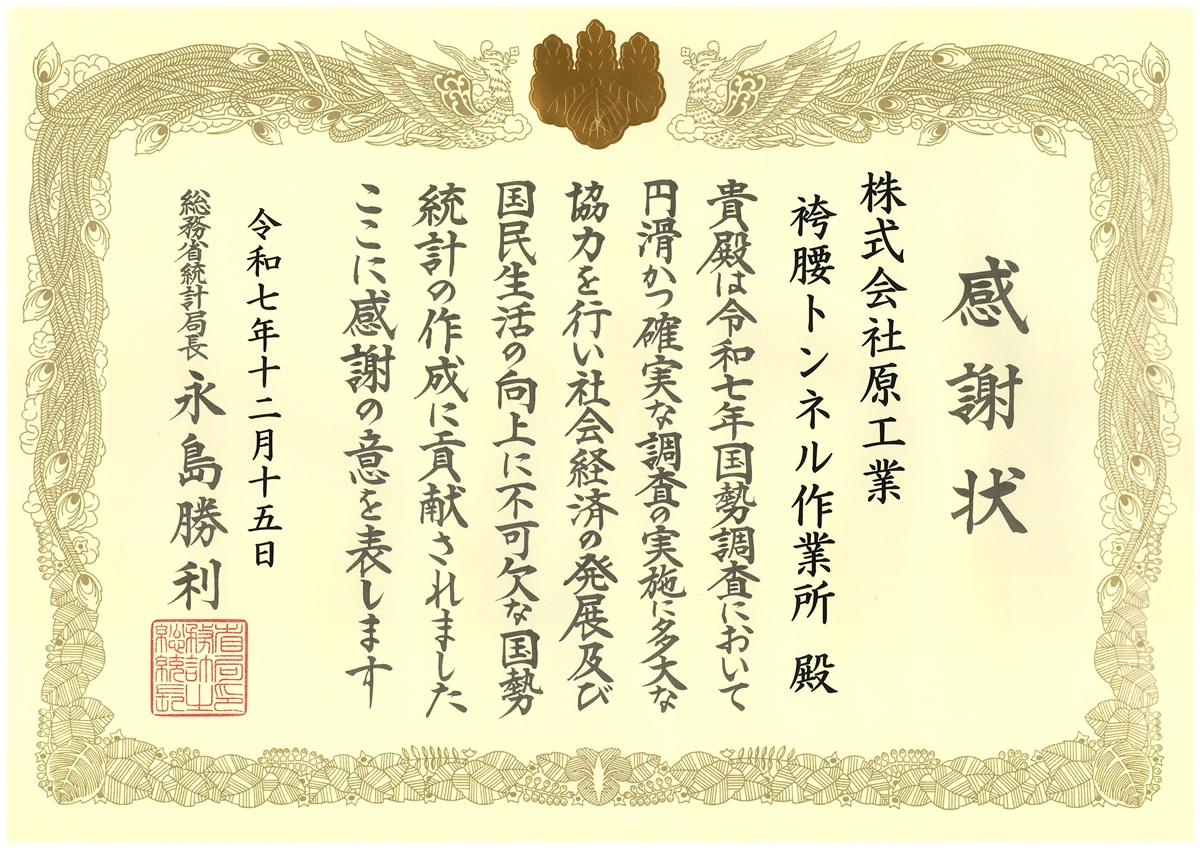 感謝状
株式会社原工業
袴腰トンネル作業所 殿
貴殿は令和七年国勢調査において
円滑かつ確実な調査の実施に多大な
協力を行い社会経済の発展及び
国民生活の向上に不可欠な国勢
統計の作成に貢献されました
ここに感謝の意を表します
令和七年十二月十五日
総務省統計局長 永島勝利